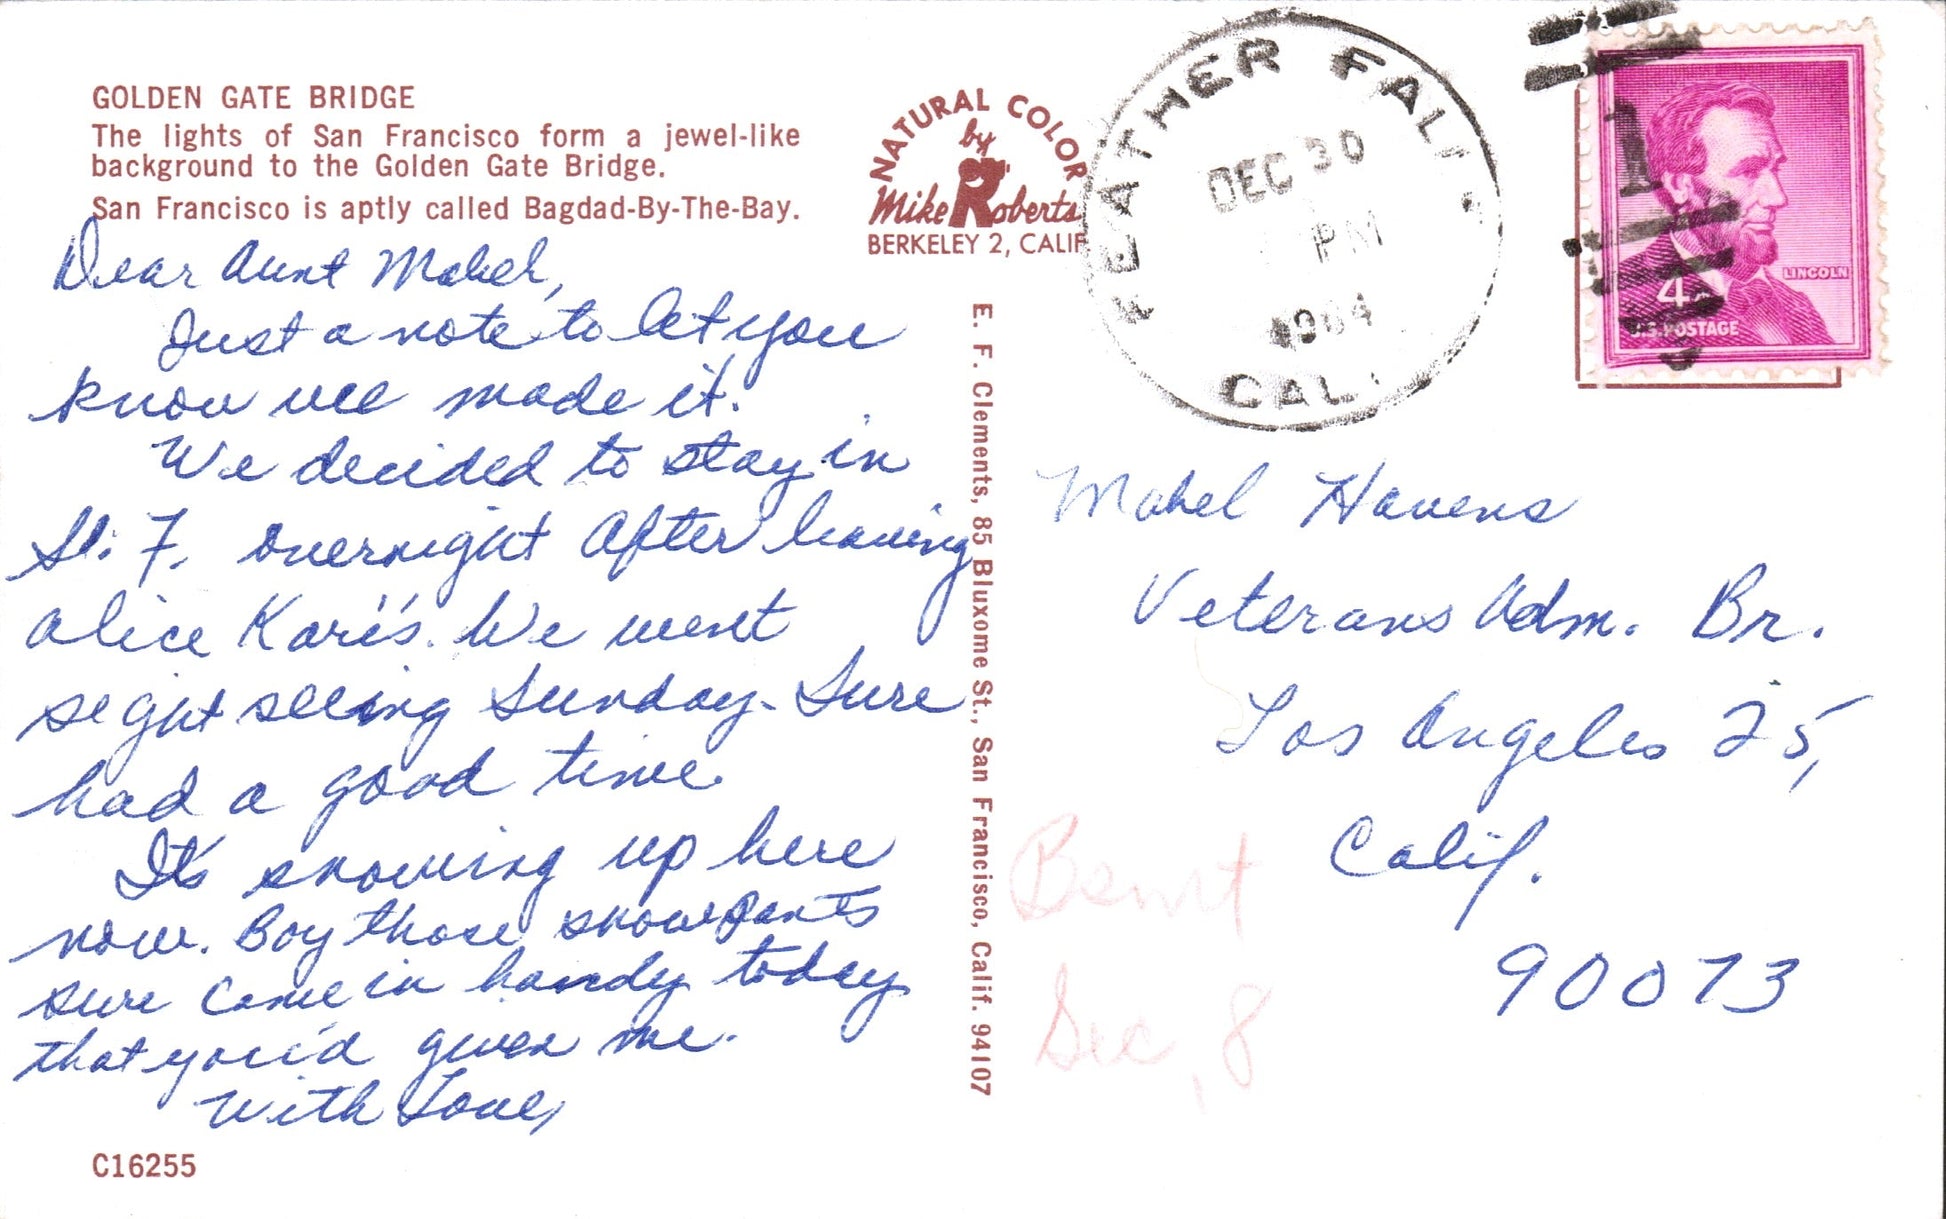 GOLDEN GATE BRIDGE
The lights of San Francisco form a jewel-like
background to the Golden Gate Bridge.
San Francisco is aptly called Bagdad-By-The-Bay.
Dear Aunt Mabel,
Just a note to let you
know we made it.
We decided to stay in
S. F. overnight after leaving
Alice Kari's. We went
sight seeing Sunday - Sure
had a good time
It's snowing up here
now. Boy those snowpants
sure came in handy today
that you'd given me.
With Love,
C16255
NATURAL COLOR
by
Mike Roberts
BERKELEY 2, CALIF
E. F. Clements, 85 Bluxome St., San Francisco, Calif. 94107
FEATHER FALLS
DEC 30
PM
1964
CAL.
LINCOLN
4¢
U.S. POSTAGE
Mabel Havens
Veterans Adm. Br.
Los Angeles 25,
Calif.
90073
Bsmt
Sec, 8